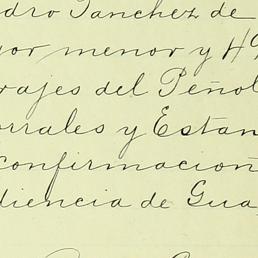 dro Sanchez de
yor menor y H
rajes del Peñol
orrales y Estan
confirmacion
diencia de Gua